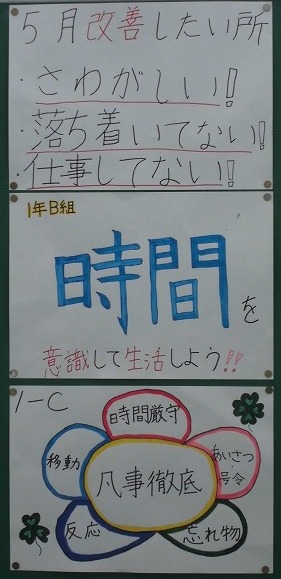 5月改善したい所
・さわがしい!
・落ち着いてない!
・仕事してない!
1年B組
時間を
意識して生活しよう!!
1-C
時間厳守
移動
あいさつ・号令
凡事徹底
反応
忘れ物